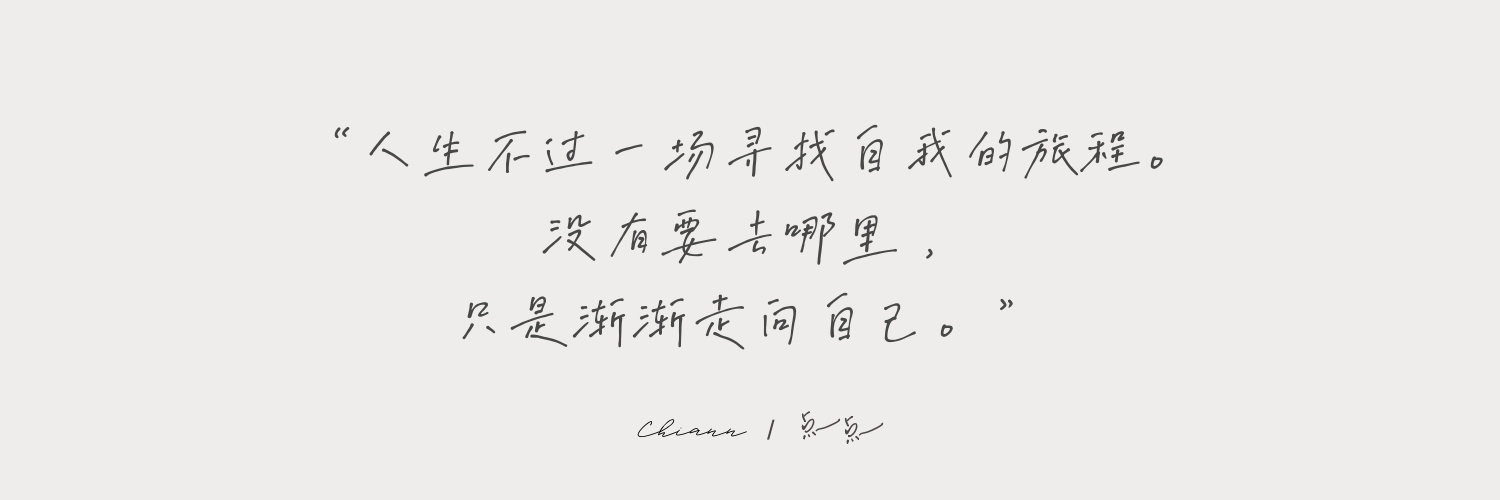 “人生不过一场寻找自我的旅程。
没有要去哪里，
只是渐渐走向自己。”
Chiann / 点点